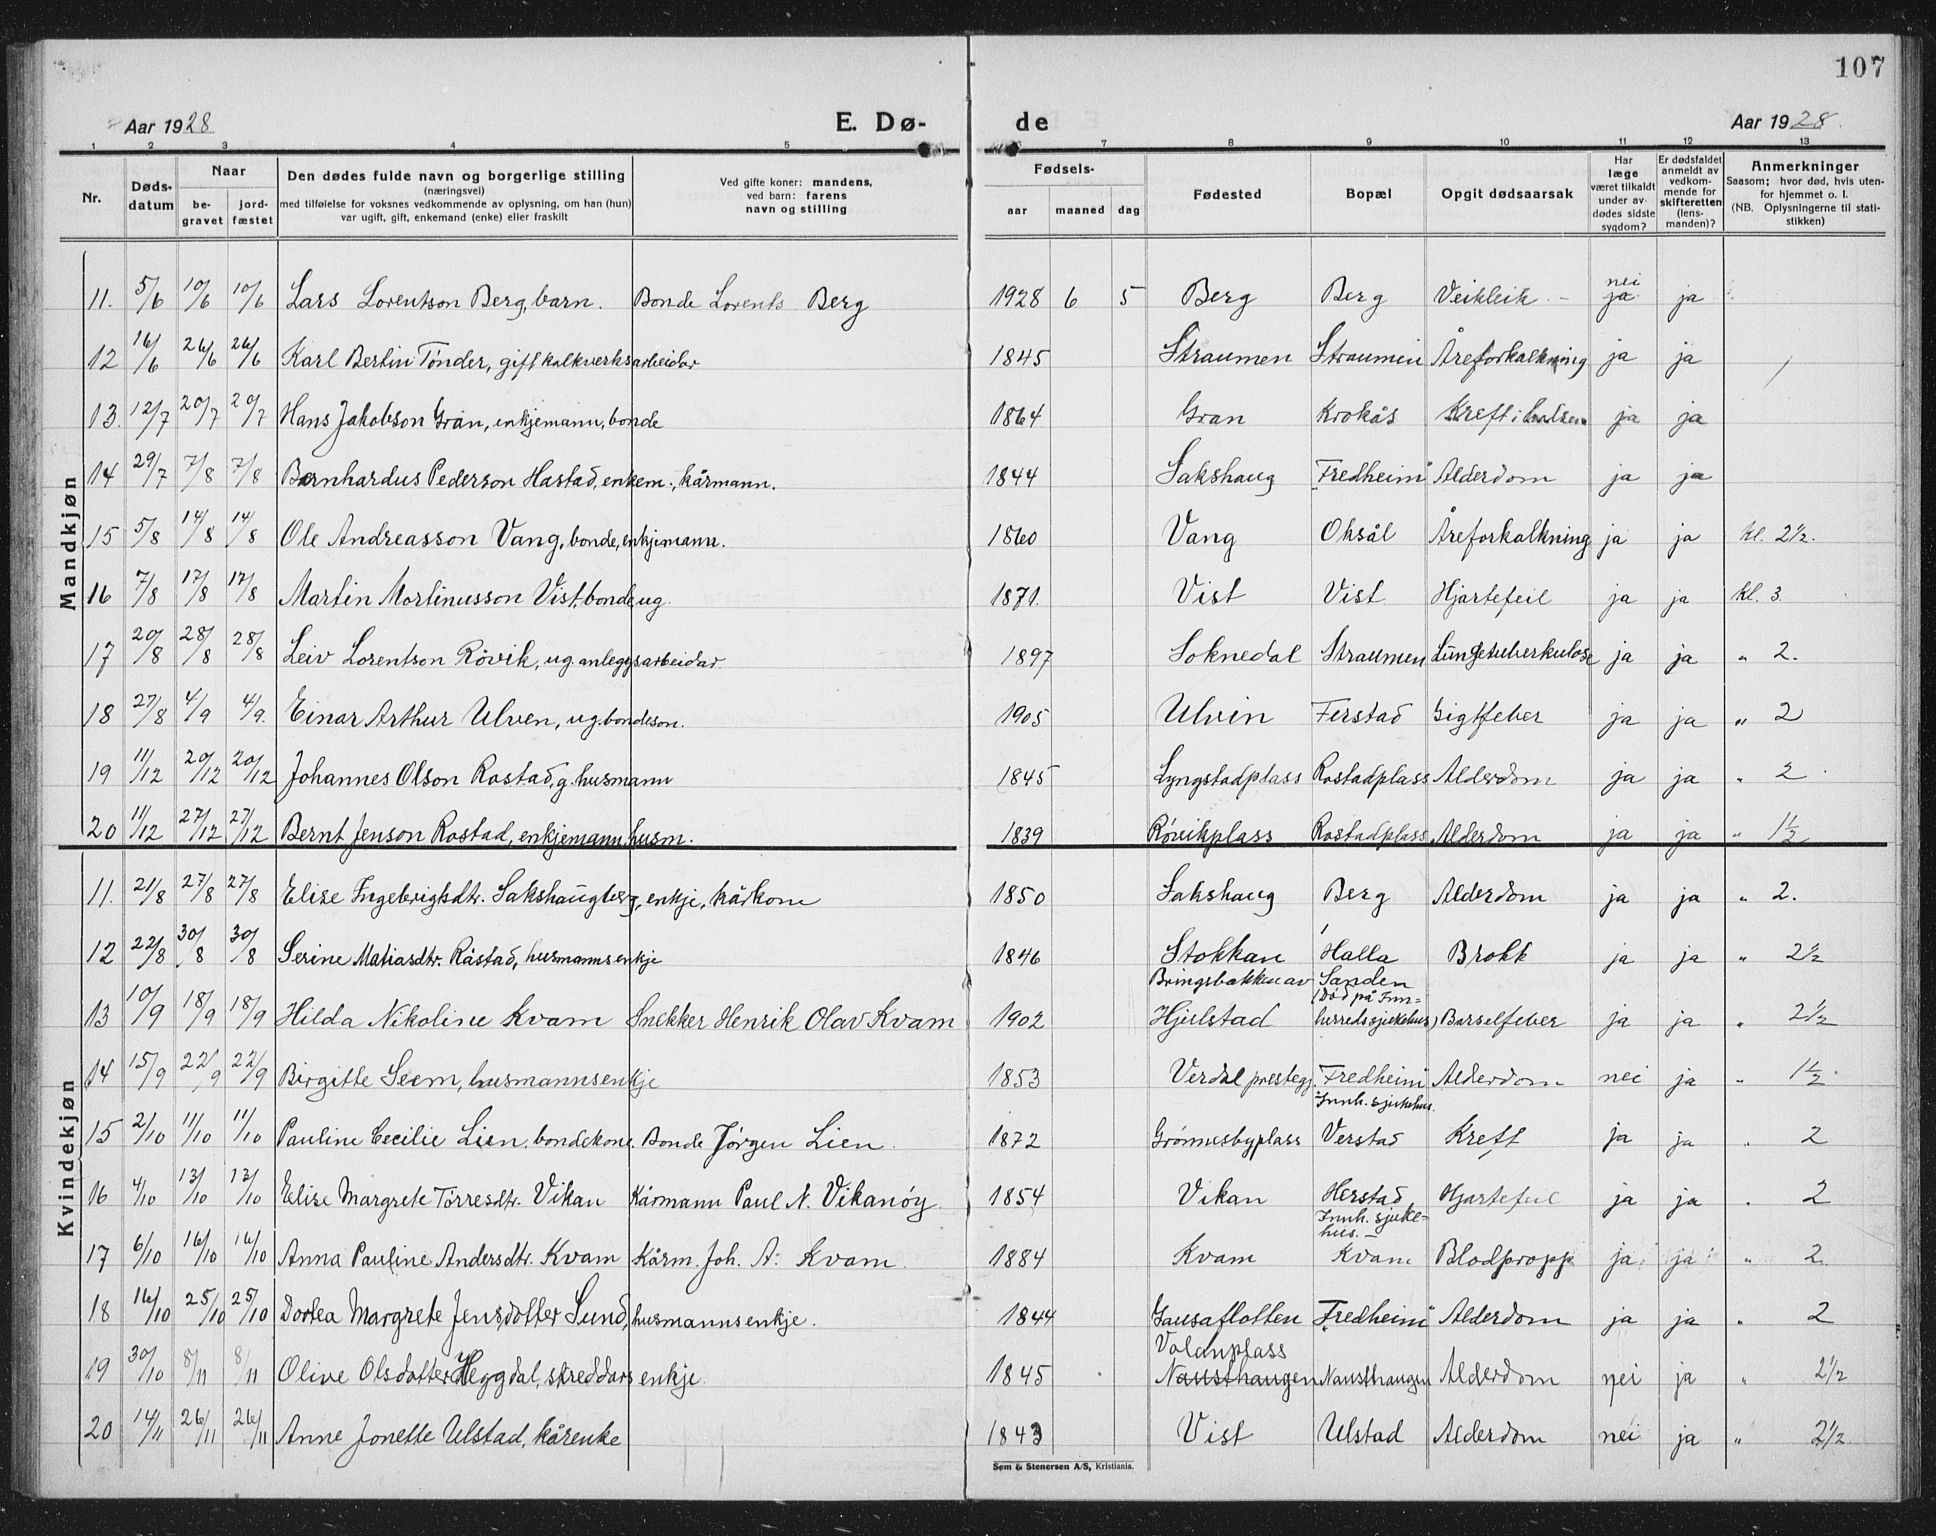 107
Aar 1928 E. Dø-
de Aar 1928.
1 2 3 4 5
7 8 9 10 11 12 13
Nr. Døds-datum Naar be-gravet jord-fæstet Den dødes fulde navn og borgerlige stilling (næringsvei) med tilføielse for voksnes vedkommende av oplysning, om han (hun) var ugift, gift, enkemand (enke) eller fraskilt Ved gifte koner: mandens, ved barn: farens navn og stilling
Fødsels- aar maaned dag Fødested Bopæl Opgit dødsaarsak Har læge været tilkaldt under av-dødes sidste sygdom? Er dødsfaldet anmeldt av vedkom-mende for skifteretten (lens-manden)? Anmerkninger Saasom; hvor død, hvis uten-for hjemmet o. l. (NB. Oplysningerne til stati-stikken)
Mandkjøn
11. 5/6 10/6 10/6 Lars Lorentson Berg, barn. Bonde Lorents Berg 1928 6 5 Berg Berg Veikleik nei ja ja
12 16/6 26/6 26/6 Karl Bertin Tønder, gift kalkverksarbeidar 1845 Straumen Straumen Åreforkalkning ja ja
13. 12/7 20/7 20/7 Hans Jakobson Gran, enkjemann, bonde 1864 Gran Krokås Kreft i ja ja
14 29/7 7/8 7/8 Bernhardus Pederson Hastad, enkem., kårmann. 1844 Sakshaug "Fredheim" Alderdom ja ja
15 5/8 14/8 14/8 Ole Andreasson Vang, bonde, enkjemann. 1860 Vang Oksål Åreforkalkning ja ja kl. 2 1/2.
16 7/8 17/8 17/8 Martin Mortinusson Vist, bonde, ug. 1871. Vist Vist Hjartefeil ja ja kl. 3.
17 20/8 28/8 28/8 Leiv Lorentson Røvik, ug. anleggsarbeidar 1897 Soknedal Straumen Lungetuberkulose ja ja " 2.
18 27/8 4/9 4/9. Einar Arthur Ulven, ug. bondeson. 1905 Ulvin Ferstad Gigtfeber ja ja " 2
19 11/12 20/12 20/12 Johannes Olson Rostad, g. husmann 1845 Lyngstadplass Rostadplass Alderdom ja ja " 2
20 11/12 27/12 27/12 Bernt Jenson Rostad, enkjemann, husm. 1839 Røvikplass Rostadplass Alderdom ja ja " 1 1/2
Kvindekjøn
11. 21/8 27/8 27/8 Elise Ingebrigtsdtr. Sakshaugberg, enkje, kårkone 1850 Sakshaug Berg Alderdom ja ja " 2.
12 22/8 30/8 30/8 Serine Matiasdtr. Råstad, husmannsenkje 1846 Stokkan Halla Brokk ja ja " 2 1/2
13 10/9 18/9 18/9 Hilda Nikoline Kvam Snekker Henrik Olav Kvam 1902 Bringsbakken av Hjelstad Sanden (Død på Inn-herredssjukehus) Barselfeber ja ja " 2 1/2
14 15/9 22/9 22/9 Birgitte Seem, husmannsenkje 1853 Verdal prestegj. "Fredheim" Alderdom nei ja " 1 1/2
15 2/10 11/10 11/10 Pauline Cecilie Lien, bondekone. Bonde Jørgen Lien. 1872 Grønnesbyplass Innh. sjukehus. Verstad Kreft ja ja " 2
16 4/10 13/10 13/10 Elise Margrete Torresdtr. Vikan Kårmann Paul N. Vikanøy. 1854 Vikan Herstad Hjartefeil ja ja " 2
17 6/10 16/10 16/10 Anna Pauline Andersdtr. Kvam Kårm. Joh. A. Kvam. 1884 Kvam Innh. sjuke-hus. Kvam Blodpropp ja ja " 2.
18 16/10 25/10 25/10 Dortea Margrete Jensdotter Sund, husmannsenkje. 1844 Gausaflotten "Fredheim" Alderdom ja ja " 2
19 30/10 8/11 8/11 Olive Olsdotter Heggdal, skreddarsenkje. 1845 Volanplass Nausthaugen Nausthaugen Alderdom nei ja " 2 1/2
20 14/11 26/11 26/11 Anne Jonette Ulstad, kårenke 1843 Vist Ulstad Alderdom nei ja " 2 1/2
Sem & Stenersen A/S, Kristiania.